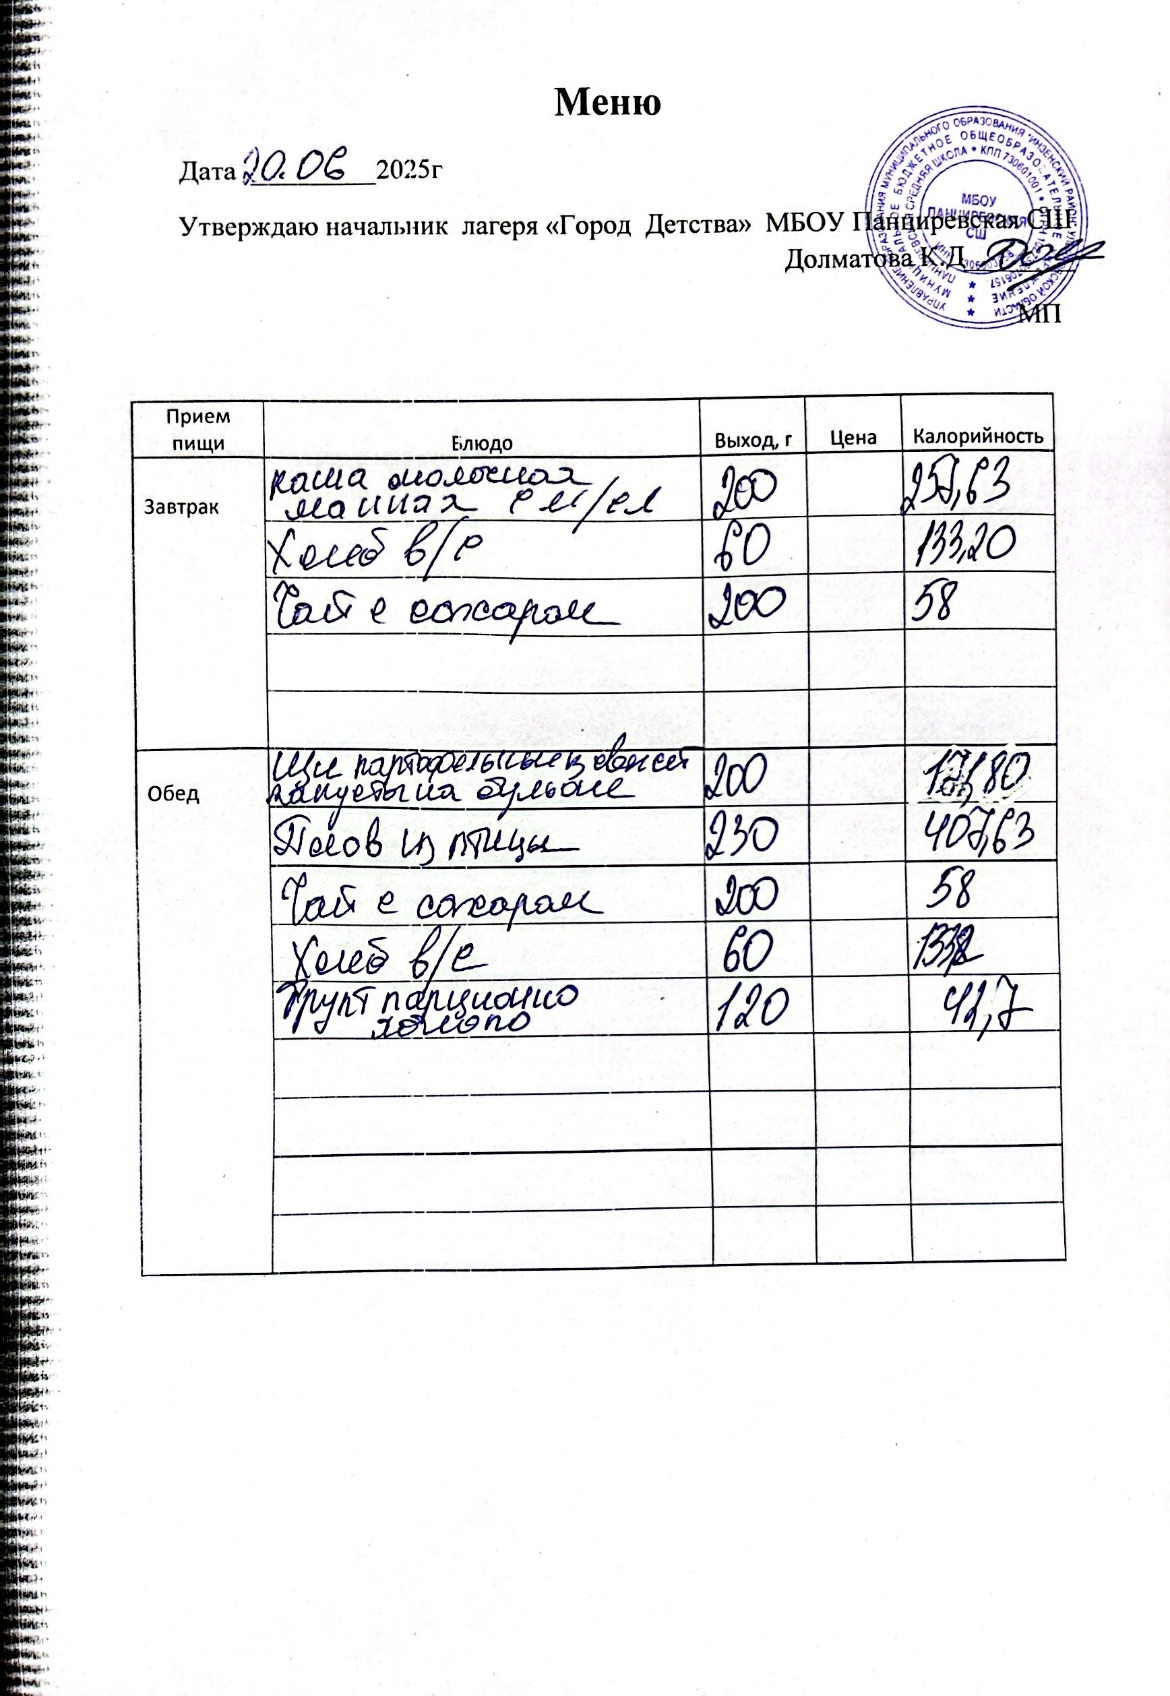 Меню
Дата 20.06 2025г
Утверждаю начальник лагеря «Город Детства» МБОУ Панциревская СШ
Долматова К.Д
МП
МБОУ
ПАНЦИРЕВСКАЯ
СШ
Прием пищи Блюдо Выход, г Цена Калорийность
Завтрак
каша молочная
манная с м/сл 200 257,63
Хлеб в/с 60 133,20
Чай с сахаром 200 58
Обед
Щи картофельные из свежей
капусты на бульоне 200
Плов из птицы 230 407,63
Чай с сахаром 200 58
Хлеб в/с 60 133,2
Фрукт порционно
яблоко 120 42,7